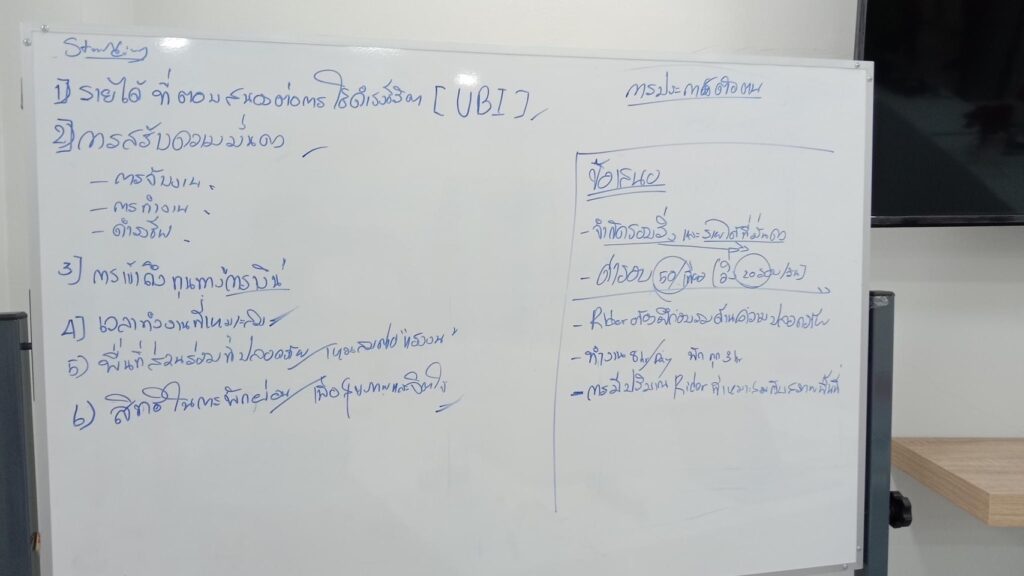 1) รายได้ ที่ ตอบสนองต่อการใช้ดำรงชีวิต [UBI]
2) การสร้างความมั่นคง
- การจ้างงาน
- การทำงาน
- ดำรงชีพ
3) การเข้าถึงทุนทางการเงิน
4) เวลาทำงานที่เหมาะสม
5) พื้นที่ส่วนร่วมที่ปลอดภัย/
6) สิทธิในการพักผ่อน/เพื่อสุขภาพและจิตใจ
การประกาศตัวตน
ข้อเสนอ
- จำกัดรอบวิ่ง และรายได้ที่มั่นคง
- ค่ารอบ 50/เที่ยว (วิ่ง 20 รอบ/วัน)
- Rider ต้องมีอบรมด้านความปลอดภัย
- ทำงาน 8 hr/Day พัก ทุก 3 hr
- การมีปริมาณ Rider ที่เหมาะสมกับสภาพพื้นที่